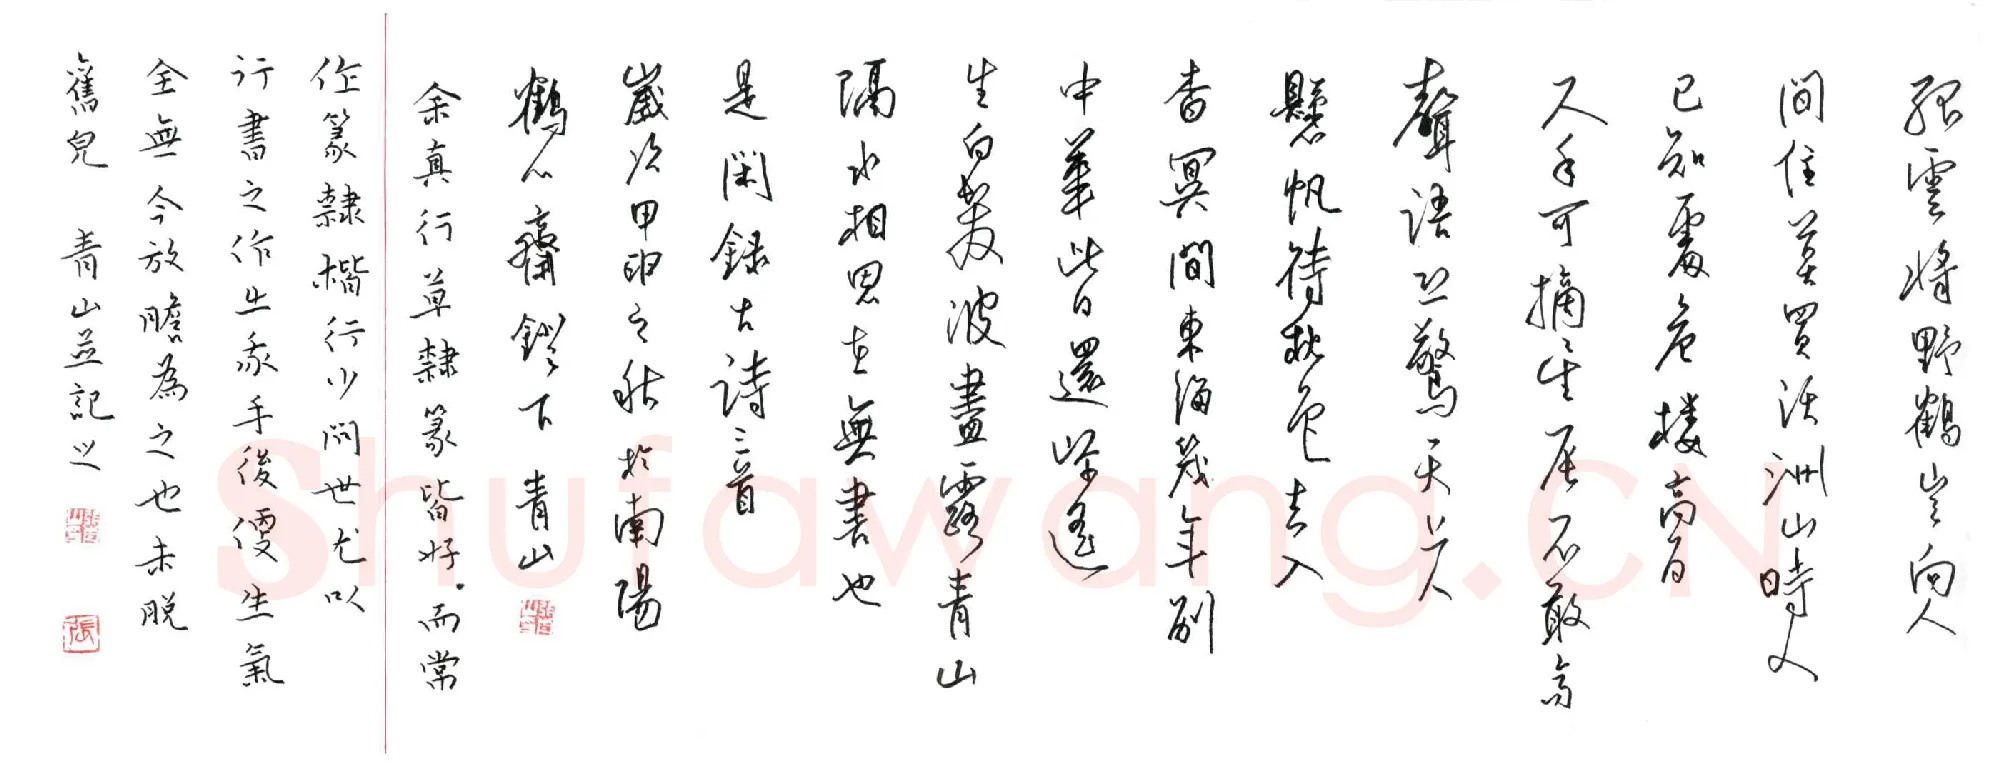 孤雲將野鶴豈向人
間住莫買沃洲山時人
已知處危樓高百
尺手可摘星辰不敢高
聲語恐驚天上人
懸帆待秋色去入
杳冥間東海幾年別
中華此日還岸遙
生白髮波盡露青山
隔水相思在無書也
是閑錄古詩三首
歲次甲申之秋於南陽
鶴心齋鐙下 青山
余真行草隸篆皆好而常
作篆隸楷行少問世尤以
行書之作出手後便生氣
全無今放膽為之也未脫
舊皃 青山並記之
張
Shufawang.CN